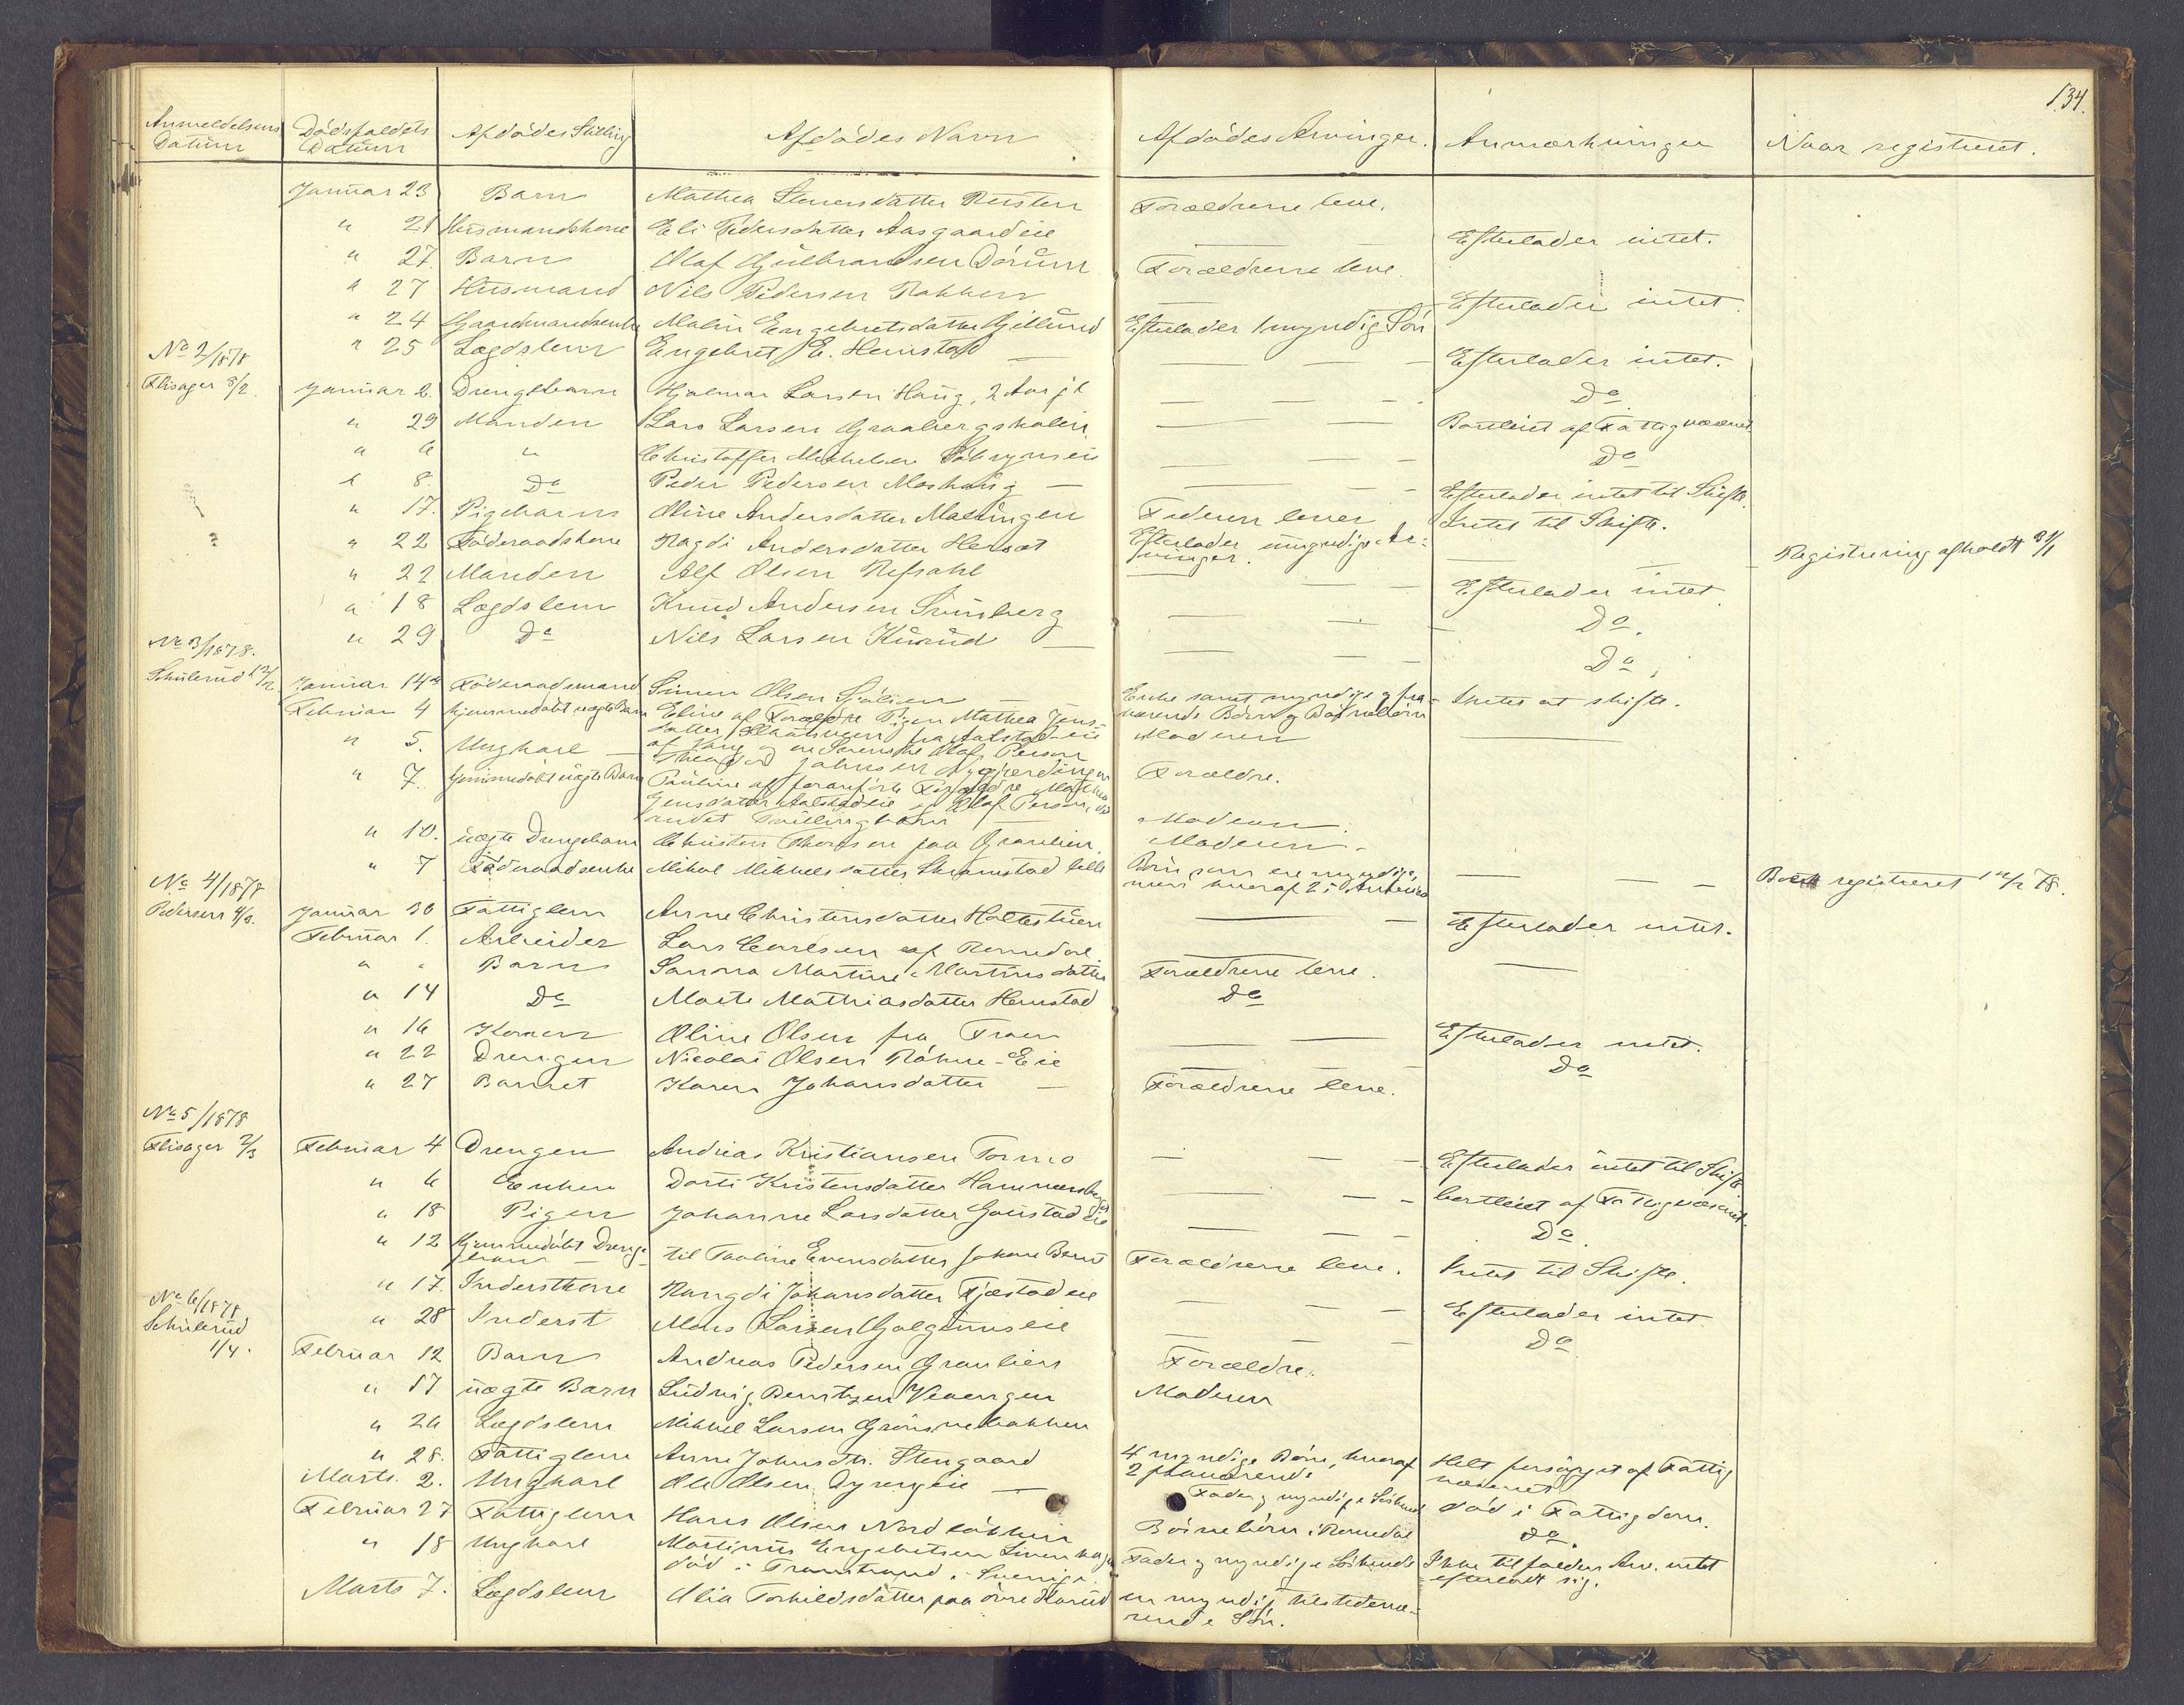 134.
Anmeldelsens Datum Dødsfaldets Datum Afdødes Stilling Afdødes Navn Afdødes Arvinger. Anmærkninger Naar registreret.
Januar 23 Barn Mathea Steners datter Reisten Forældrene leve.
" 21 Husmandskone Eli Pedersdatter Aasgaardeie — — Efterlader intet.
" 27. Barn Olaf Gulbrandsen Dørum Forældrene leve.
" 27 Husmand Nils Pedersen Bakken — — Efterlader intet.
" 24 Gaardmandsenke Malin Engebretsdatter Gjellund Efterlader 1 myndig Søn
No 2/1878 " 25 Lægdslem Engebret E. Hemstad — — — — Efterlader intet.
Flisager 8/2. Januar 2. Drengebarn Hjalmar Larsen Haug, 2 Aar gl — — — Do
" 29 Manden Lars Larsen Graabergshalen — — Bortleiet af Fattigvæsenet
" 6 " Christoffer Mikkelsen — — Do
" 8. Do Peder Pedersen Moshaug — — — — Efterlader intet til Skifte.
" 17. Pigebarn Oline Andersdatter Mællingen Faderen lever Intet til Skifte.
" 22 Føderaadskone Ragdi Andersdatter Hersæt Efterlader myndige Ar-
vinger. — — Registrering afholdt 31/1
" 22 Manden Alf Olsen Refsahl — — Efterlader intet
" 18 Lægdslem Knud Andersen — — Do.
" 29 Do Nils Larsen Kurud — — — — Do.
No 3/1878.
Schulerud 12/2 Januar 14de Føderaadsmand Simen Olsen Sjølien — Enke samt myndige og fra- Intet at skifte.
Februar 4 hjemmedøbt uægte Barn Eline af Forældre Pigen Mathea Jens- værende Børn og Børnebørn
datter fra Aalstadeie Moderen
" 5. Ungkarl — af Vang og en Svenske Olaf Person
Johnsen Forældre.
" 7. hjemmedøbt uægte Barn Pauline af foranførte Forældre Mathea
Jensdatter Aalstadeie og Olaf Person,
andet Tvillingbarn — Moderen.
" 10. uægte Drengebarn Christen Thorsen paa Graulien. Moderen.
" 7 Føderaadsenke Mikal Mikkelsdatter Skramstad lille Børn som ere myndige,
men hvoraf 2 i Amerika — — — registreret 12/2 78.
No 4/1878
Pedersen 4/3. Januar 30 Fattiglem Anne Christensdatter Holtestuen — — Efterlader intet.
Februar 1. Arbeider Lars Carlsen af Romedal
" " Barn Sanna Martine Martinsdatter Forældrene leve. —
" 14 Do Marte Mathiasdatter Hemstad Do
" 16 Konen Oline Olsen fra Traen — — Efterlader intet.
" 22 Drengen Nicolai Olsen Røhne-Eie — — — Do
" 27 Barnet Karen Johansdatter — Forældrene leve.
No 5/1878
Flisager 2/3 Februar 4 Drengen Andreas Kristiansen Tormo — — — Efterlader intet til Skifte
" 6 Enken Dorte Kristensdatter — — — bortleiet af Fattigvæsenet.
" 18 Pigen Johanne Larsdatter Gaustad eie — — — Do.
" 12 hjemmedøbt Drenge-
barn — til Pauline Evensdatter Forældrene leve. Intet til Skifte.
" 17. Inderstkone Rangdi Johansdatter Fjæstadeie — — — Efterlader intet
No 6/1878.
Schulerud
1/4. " 28 Inderst Mons Larsen Galgumseie — — — Do
Februar 12 Barn Andreas Pedersen Graulien Forældre.
" 17 uægte Barn Ludvig Berntzen Moderen
" 26 Lægdslem Mikkel Larsen
" 28. Fattiglem Anne Johnsdtr. Stengaard 4 myndige Børn, hvoraf Helt forsørget af Fattig
2 fraværende væsenet
Marts. 2. Ungkarl Ole Olsen — Fader og myndige Søskende død i Fattigdom.
Februar 27 Fattiglem Hans Olsen Børnebørn i Romedal Do.
" 18 Ungkarl Martinus Engebretsen Fader og myndige Søskende Ikke tilfalden Arv. intet
død i Sverige. efterladt sig.
Marts 7. Lægdslem Olia Torkildsdatter paa øvre Harud en myndig tilstedevæ-
rende Søn.